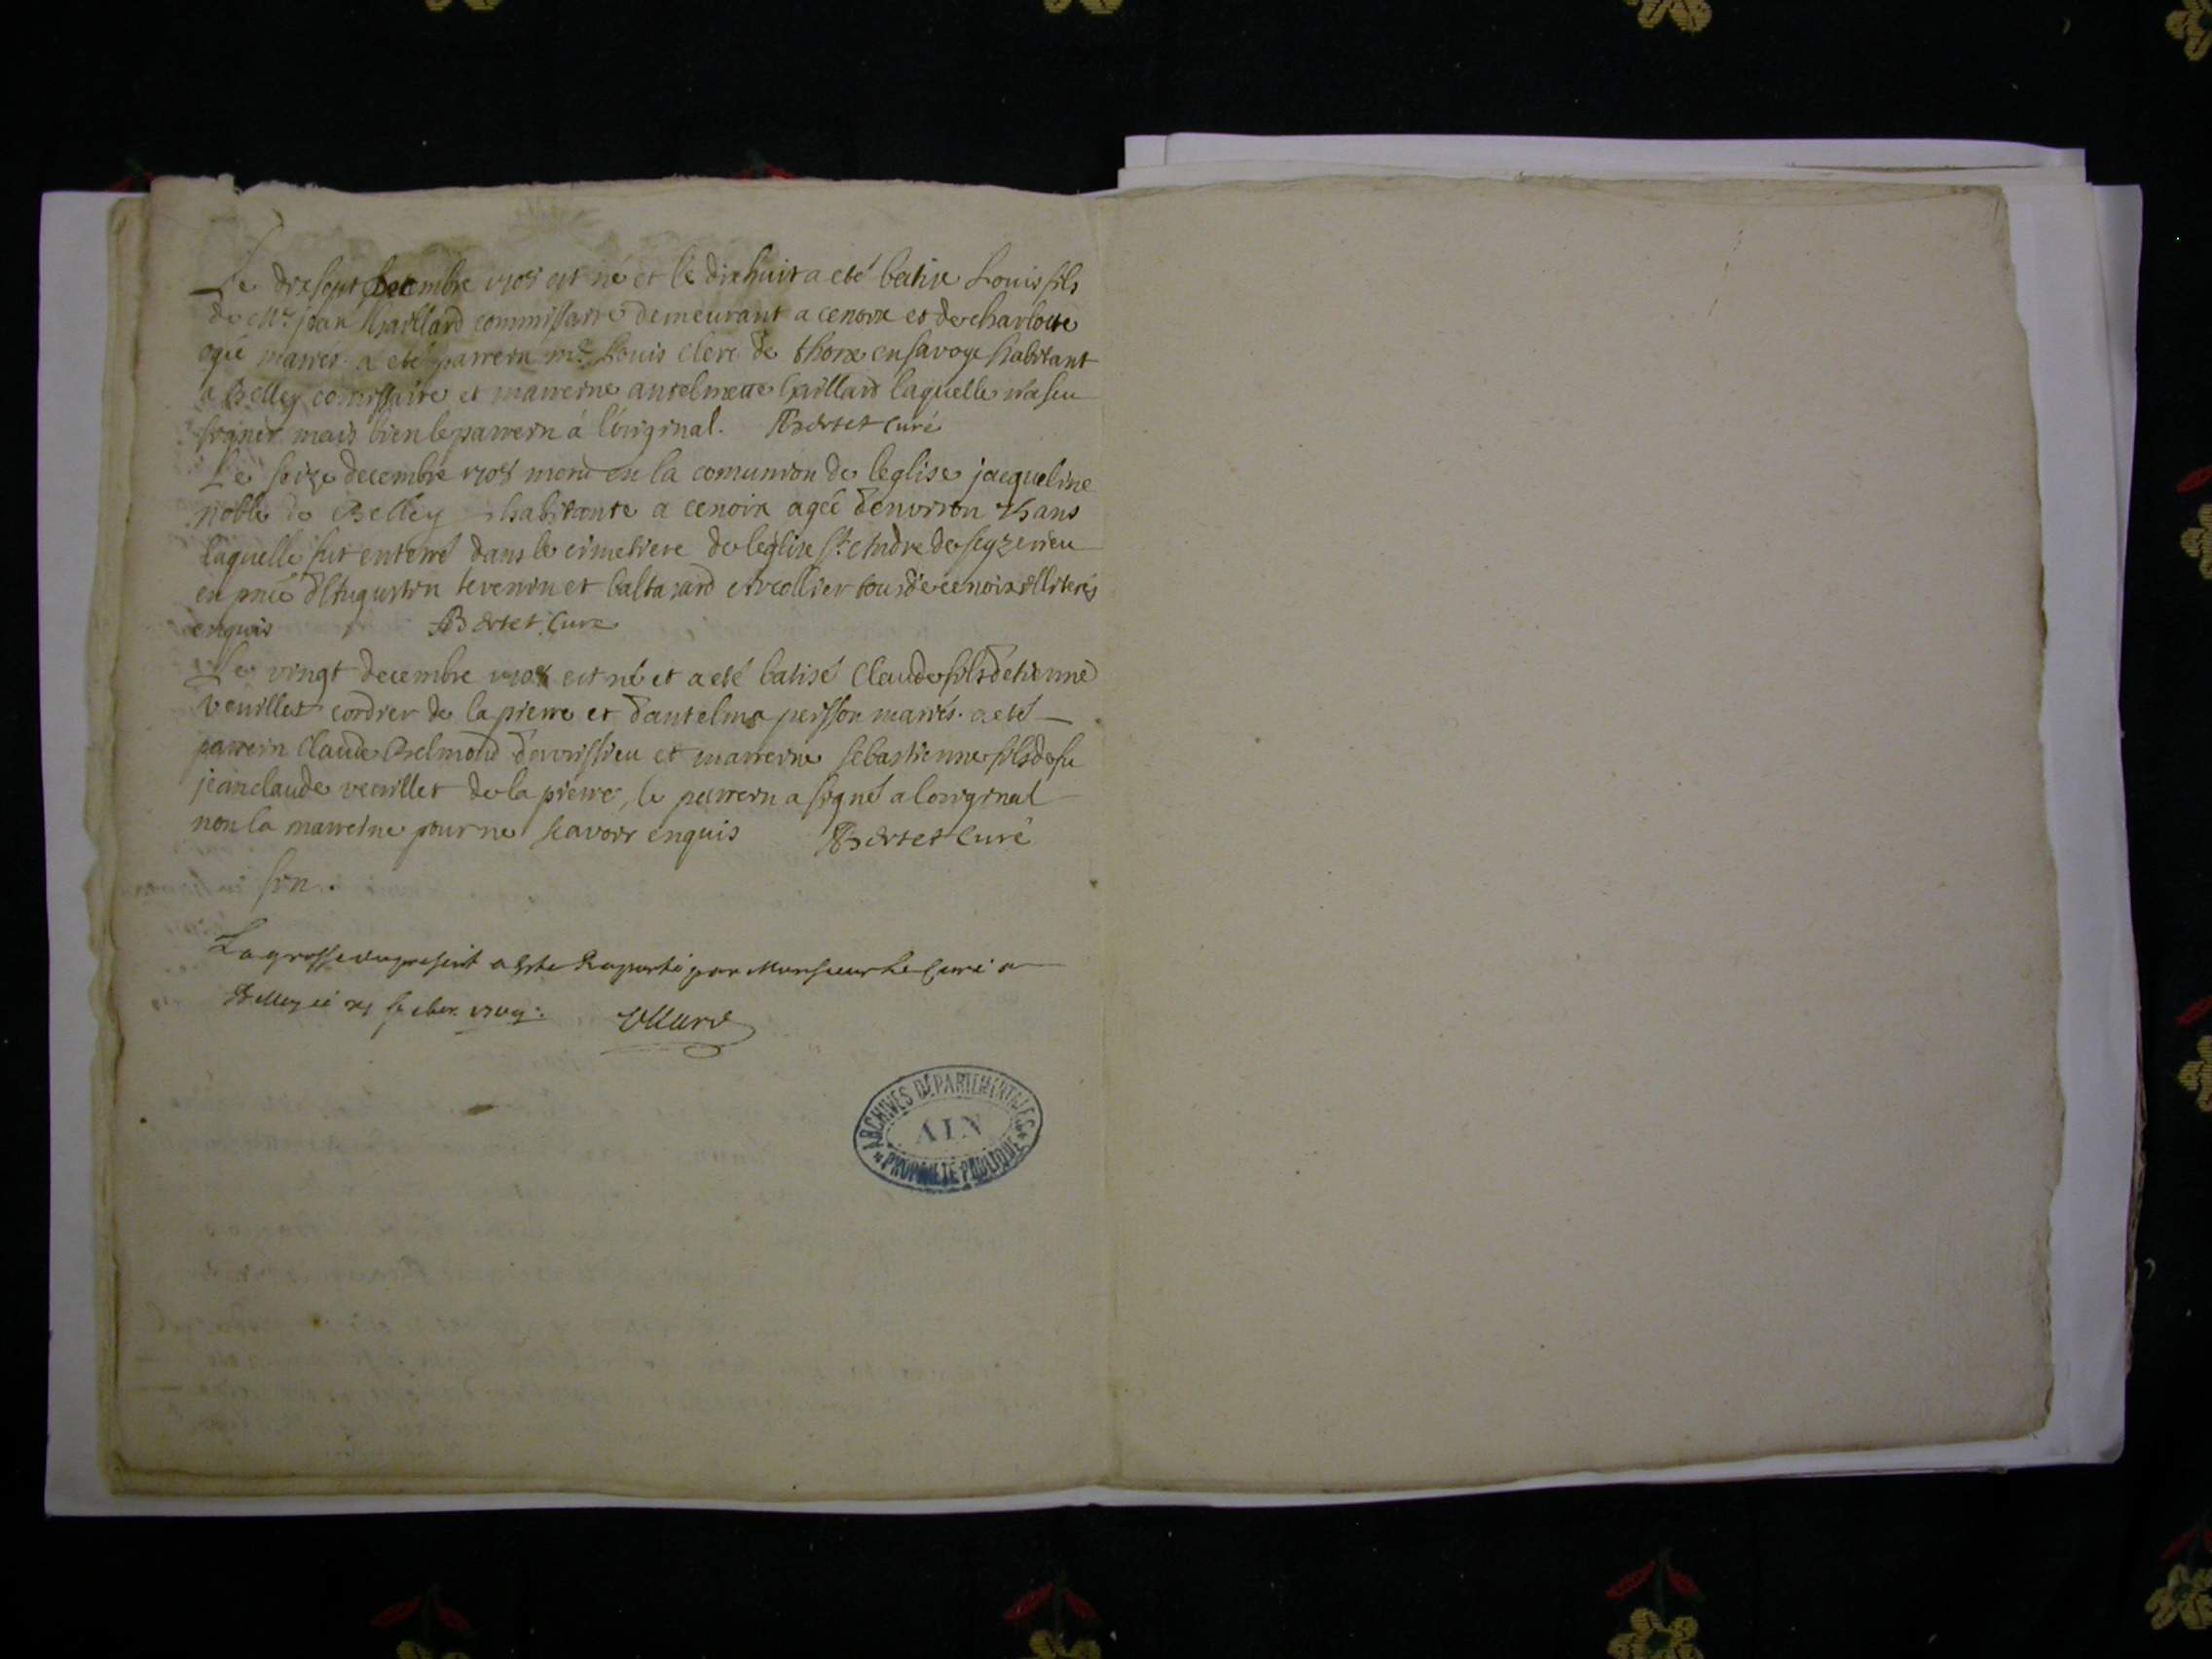 Le dixsept decembre 1708 est né et le dixhuit a eté batisé Louis fils
de Mr. jean Gaillard commissaire demeurant a cenoix et de charlotte
ogié mariés. a eté parrein mr. Louis Clerc de thone en savoye habitant
a Belley comissaire et marreine antelmette Gaillard laquelle na seu
signer mais bien le parrein á l'original. Bertet curé
Le seize decembre 1708 morut en la comunion de leglise jacqueline
noble de Belley habitante a cenoix agée denviron ans
laquelle fut enterré dans le cimetiere de leglise St. Andre de seyzerieu
en pnce d'Augustin tevenin et baltazard Arcollier tous de cenoix illiterés
enquis Bertet Curé
Le vingt decembre 1708 est né et a eté batisé Claude fils detienne
veuillet cordier de la pierre et dantelma perisson mariés. a eté
parrein Claude Belmond davrissieu et marreine sebastienne fille de fu
jeanclaude veuillet de la pierre, le parrein a signé a loriginal
non la marreine pour ne scavoir enquis Bertet Curé
fin.
La grosse du present a este raporté par Monsieur le Curé a
Belley ce
ARCHIVES DÉPARTEMENTALES
AIN
PROPRIÉTÉ PUBLIQUE